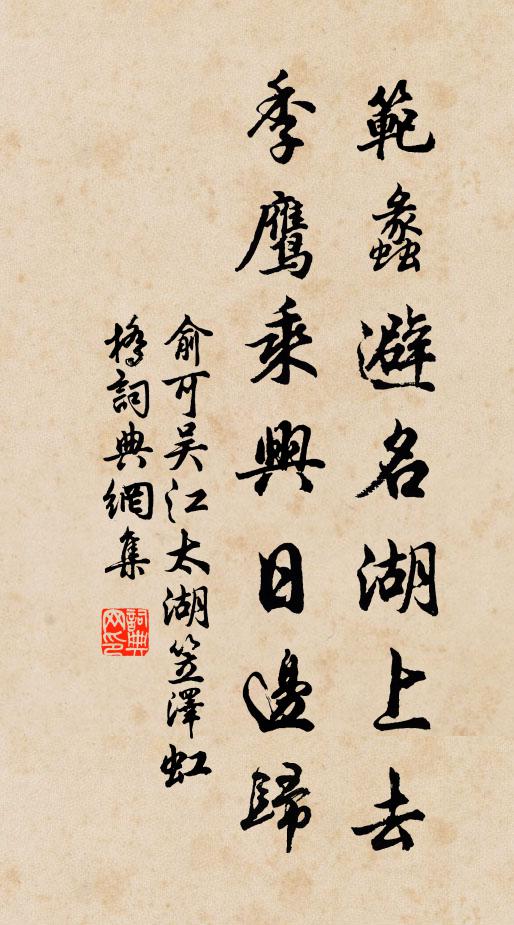 範蠡避名湖上去
季鹰乘興日邊歸
俞可吴江太湖笠澤虹
橋詞典網集
詞典网印